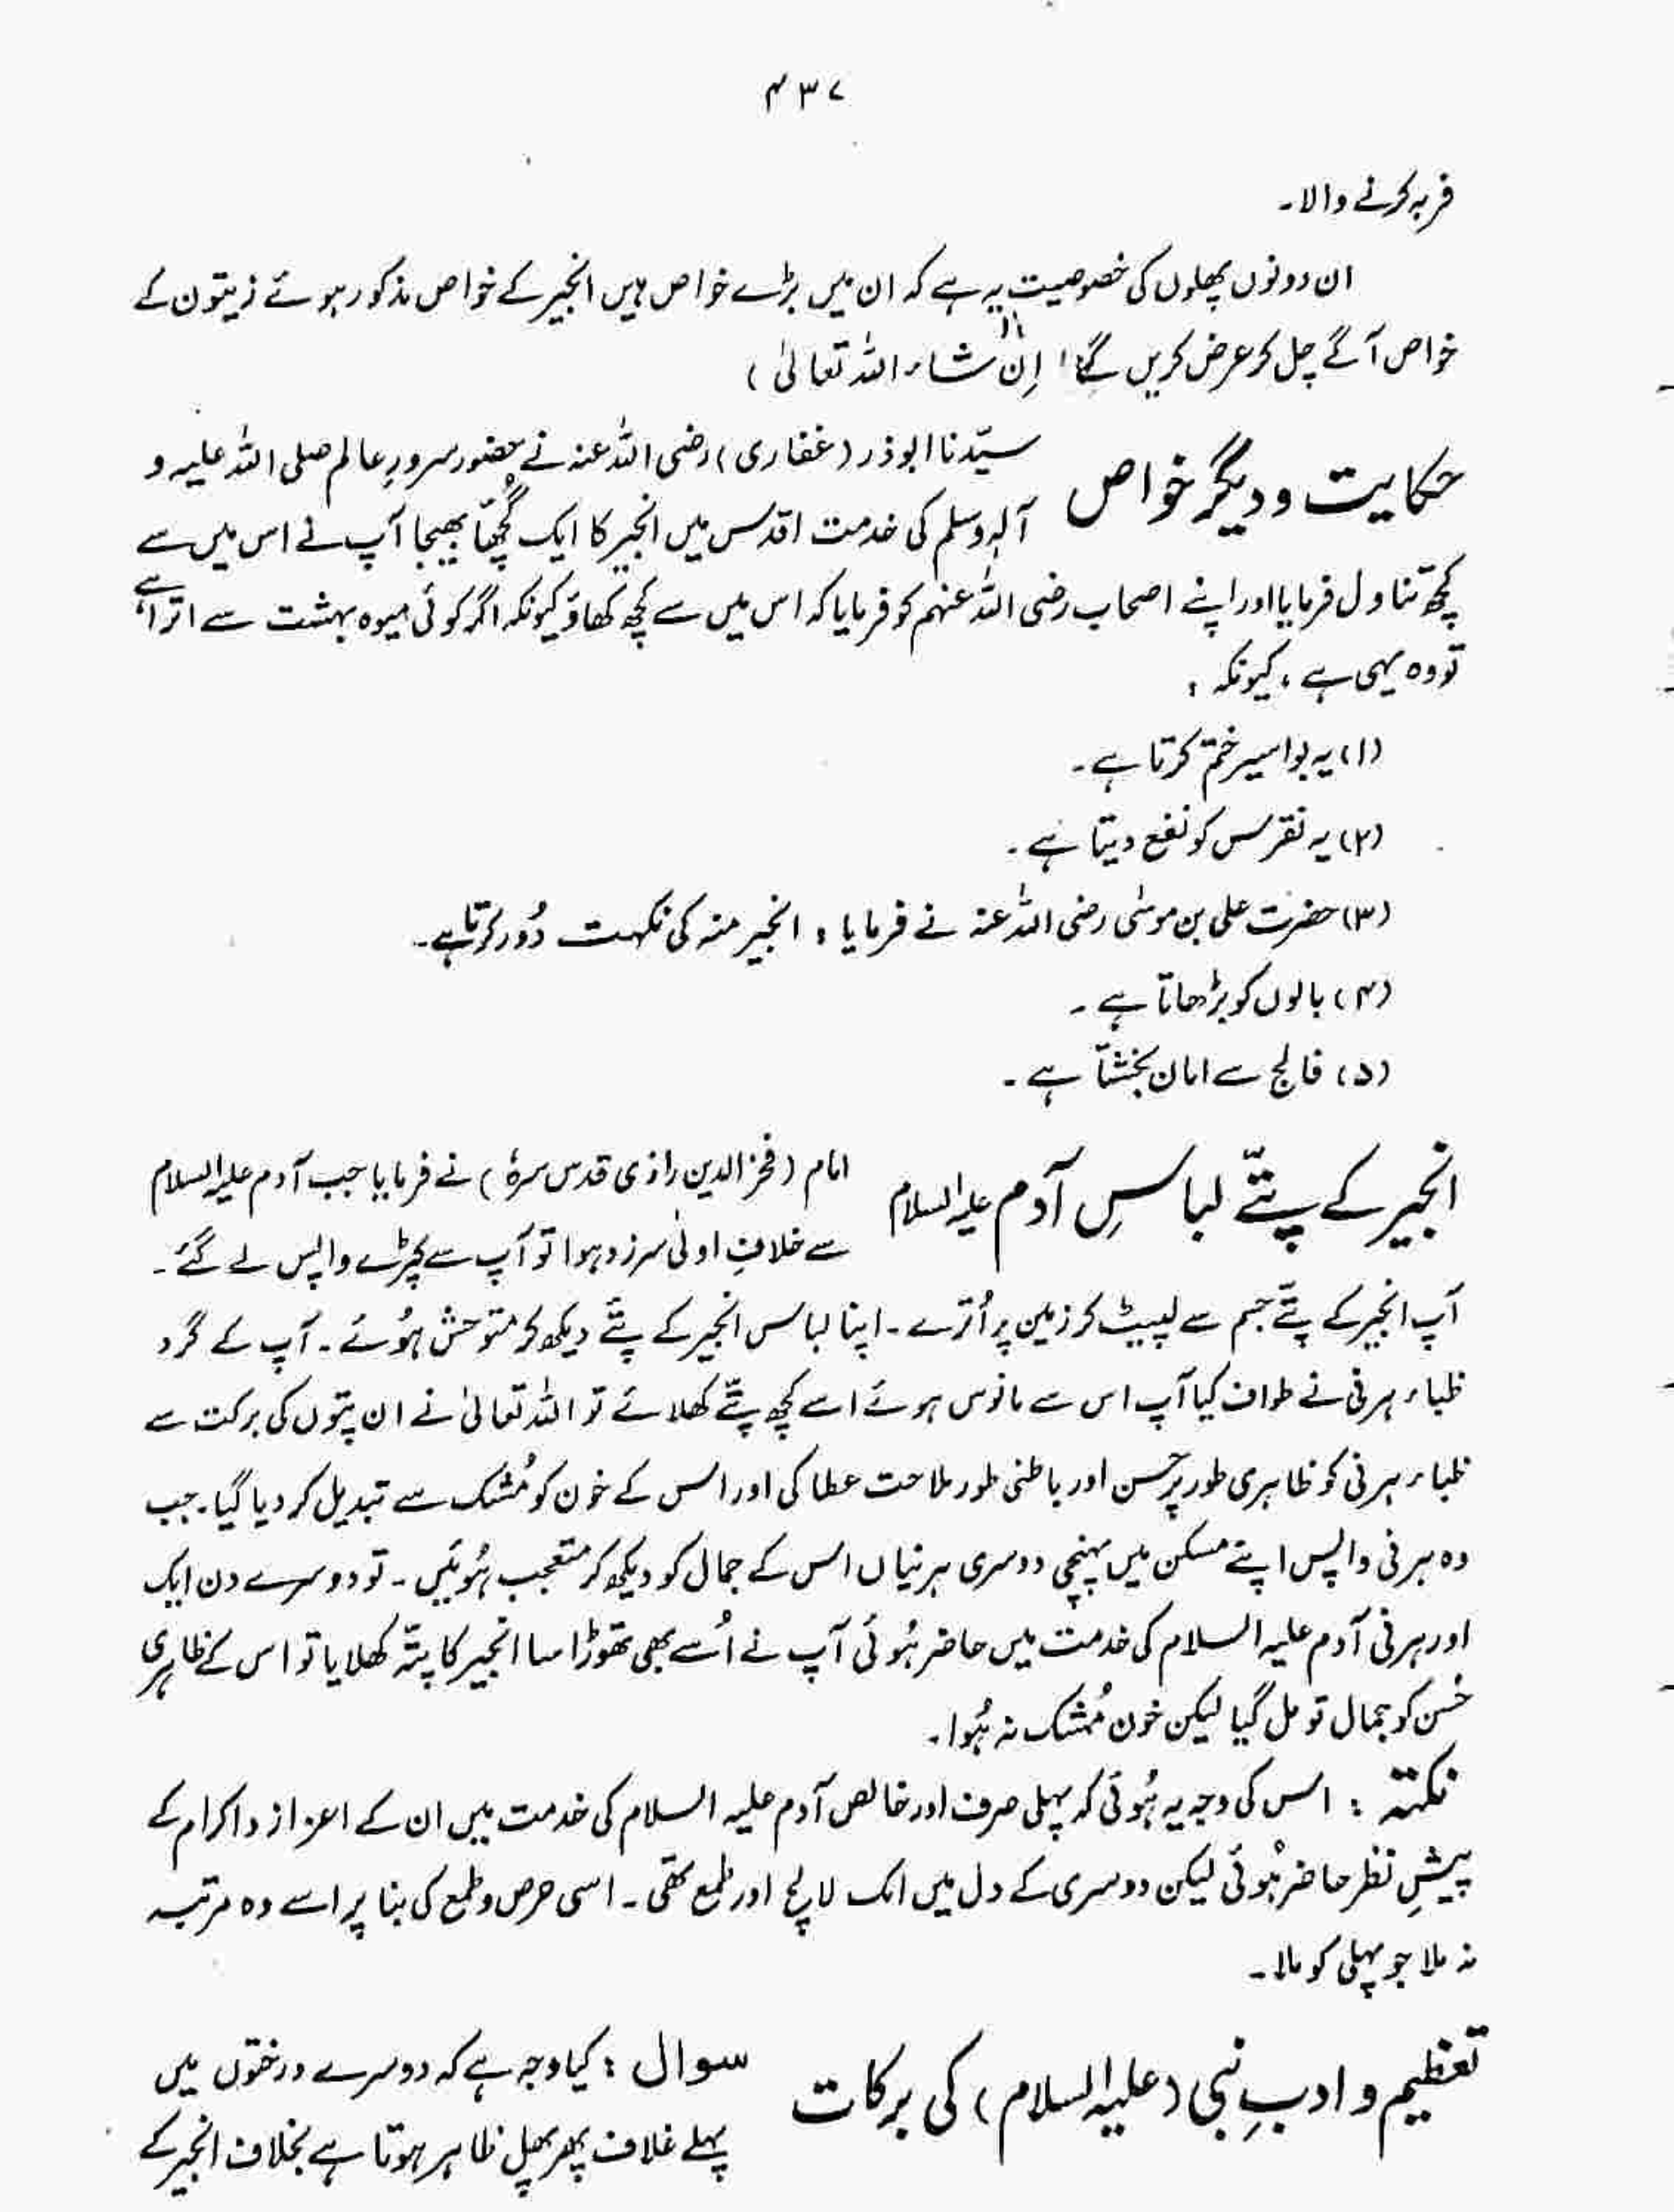 ۴۳۷
فربہ کرنے والا۔
ان دونوں پھلوں کی خصوصیت یہ ہے کہ ان میں بڑے خواص ہیں انجیر کے خواص مذکور ہوئے زیتون کے
خواص آگے چل کر عرض کریں گے (اِن شاء اللہ تعالیٰ)
حکایت و دیگر خواص سیّدنا ابوذر (غفاری) رضی اللہ عنہ نے حضور سرورِ عالم صلی اللہ علیہ و
آلہٖ وسلم کی خدمت اقدس میں انجیر کا ایک گُچھّا بھیجا آپ نے اس میں سے
کچھ تناول فرمایا اور اپنے اصحاب رضی اللہ عنہم کو فرمایا کہ اس میں سے کچھ کھاؤ کیونکہ اگر کوئی میوہ بہشت سے اترا ہے
تو وہ یہی ہے، کیونکہ :
(۱) یہ بواسیر ختم کرتا ہے۔
(۲) یہ نقرس کو نفع دیتا ہے۔
(۳) حضرت علی بن موسٰی رضی اللہ عنہ نے فرمایا : انجیر منہ کی نکہت دُور کرتا ہے۔
(۴) بالوں کو بڑھاتا ہے۔
(۵) فالج سے امان بخشتا ہے۔
انجیر کے پتّے لباسِ آدم علیہ السلام امام (فخر الدین رازی قدس سرہٗ) نے فرمایا جب آدم علیہ السلام
سے خلافِ اولٰی سرزد ہوا تو آپ سے کپڑے واپس لے گئے۔
آپ انجیر کے پتّے جسم سے لپیٹ کر زمین پر اُترے۔ اپنا لباس انجیر کے پتّے دیکھ کر متوحش ہُوئے۔ آپ کے گرد
ظباء ہرنی نے طواف کیا آپ اس سے مانوس ہوئے اسے کچھ پتّے کھلائے تو اللہ تعالیٰ نے ان پتوں کی برکت سے
ظباء ہرنی کو ظاہری طور پر حسن اور باطنی طور ملاحت عطا کی اور اس کے خون کو مُشک سے تبدیل کر دیا گیا۔ جب
وہ ہرنی واپس اپنے مسکن میں پہنچی دوسری ہرنیاں اس کے جمال کو دیکھ کر متعجب ہُوئیں۔ تو دوسرے دن ایک
اور ہرنی آدم علیہ السلام کی خدمت میں حاضر ہُوئی آپ نے اُسے بھی تھوڑا سا انجیر کا پتّہ کھلایا تو اس کے ظاہری
حُسن کو جمال تو مل گیا لیکن خون مُشک نہ ہُوا۔
نکتہ : اس کی وجہ یہ ہُوئی کہ پہلی صرف اور خالص آدم علیہ السلام کی خدمت میں ان کے اعزاز و اکرام کے
پیشِ نظر حاضر ہُوئی لیکن دوسری کے دل میں اک لالچ اور طمع تھی۔ اسی حرص و طمع کی بنا پر اسے وہ مرتبہ
نہ ملا جو پہلی کو ملا۔
تعظیم و ادبِ نبی (علیہ السلام) کی برکات سوال : کیا وجہ ہے کہ دوسرے درختوں میں
پہلے غلاف پھر پھل ظاہر ہوتا ہے بخلاف انجیر کے